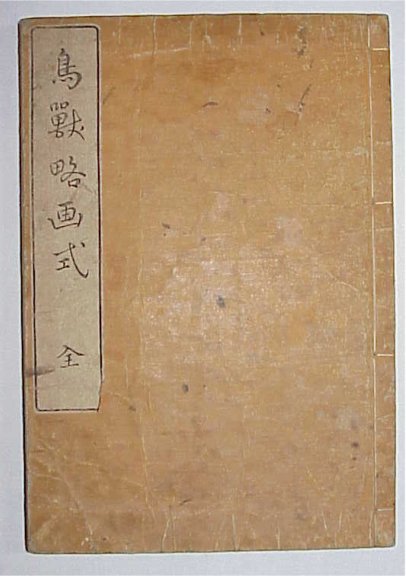 鳥獸略画式 全